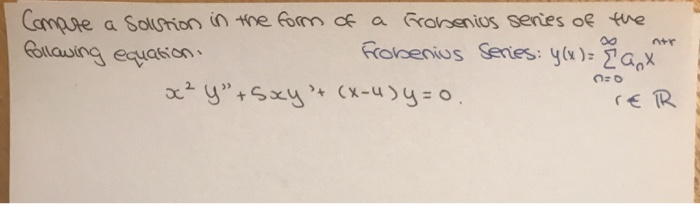 Compute a solution in the form of a Frobenius series of the
following equation. Frobenius Series: y(x) = ∞∑n=0 aₙx^(n+r)
x² y'' + 5xy' + (x-4)y = 0. r ∈ ℝ